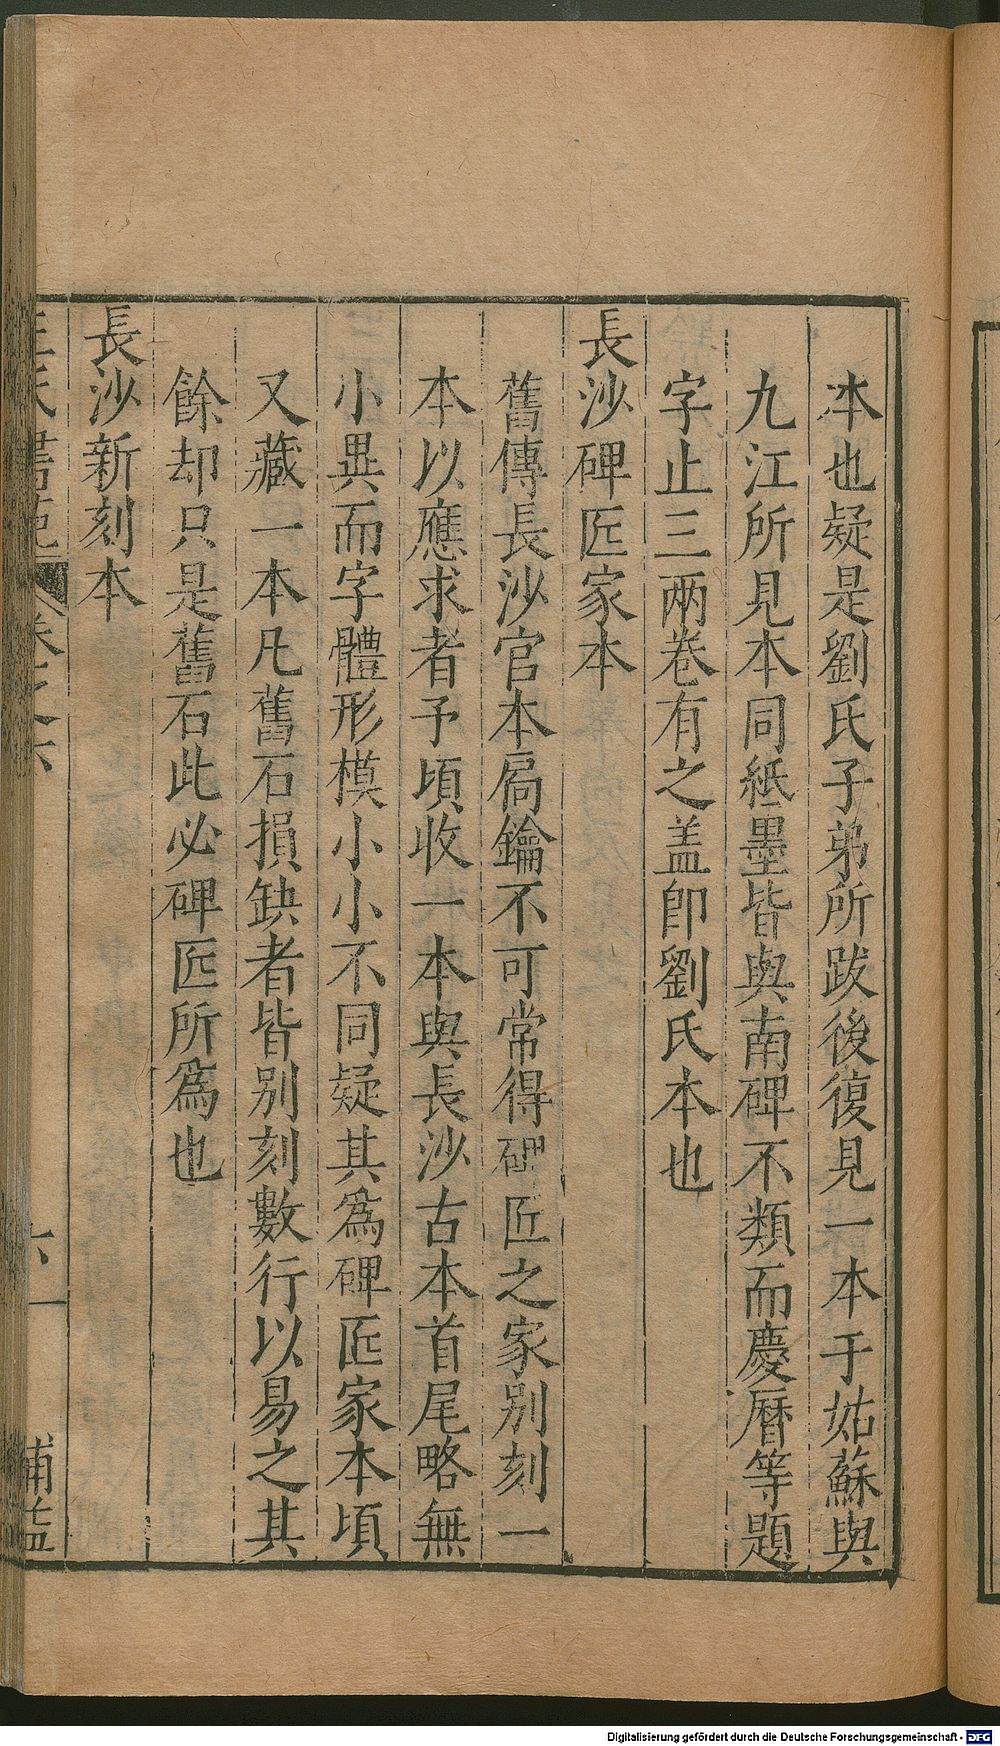 本也疑是劉氏子弟所跋後復見一本于姑蘇與
九江所見本同紙墨皆與南碑不類而慶曆等題
字止三兩卷有之盖即劉氏本也
長沙碑匠家本
舊傳長沙官本扄鑰不可常得碑匠之家別刻一
本以應求者予頃收一本與長沙古本首尾略無
小異而字體形模小小不同疑其爲碑匠家本頃
又藏一本凡舊石損缺者皆別刻數行以易之其
餘却只是舊石此必碑匠所爲也
長沙新刻本
王氏書苑 卷之六 六一 補益
Digitalisierung gefördert durch die Deutsche Forschungsgemeinschaft - DFG